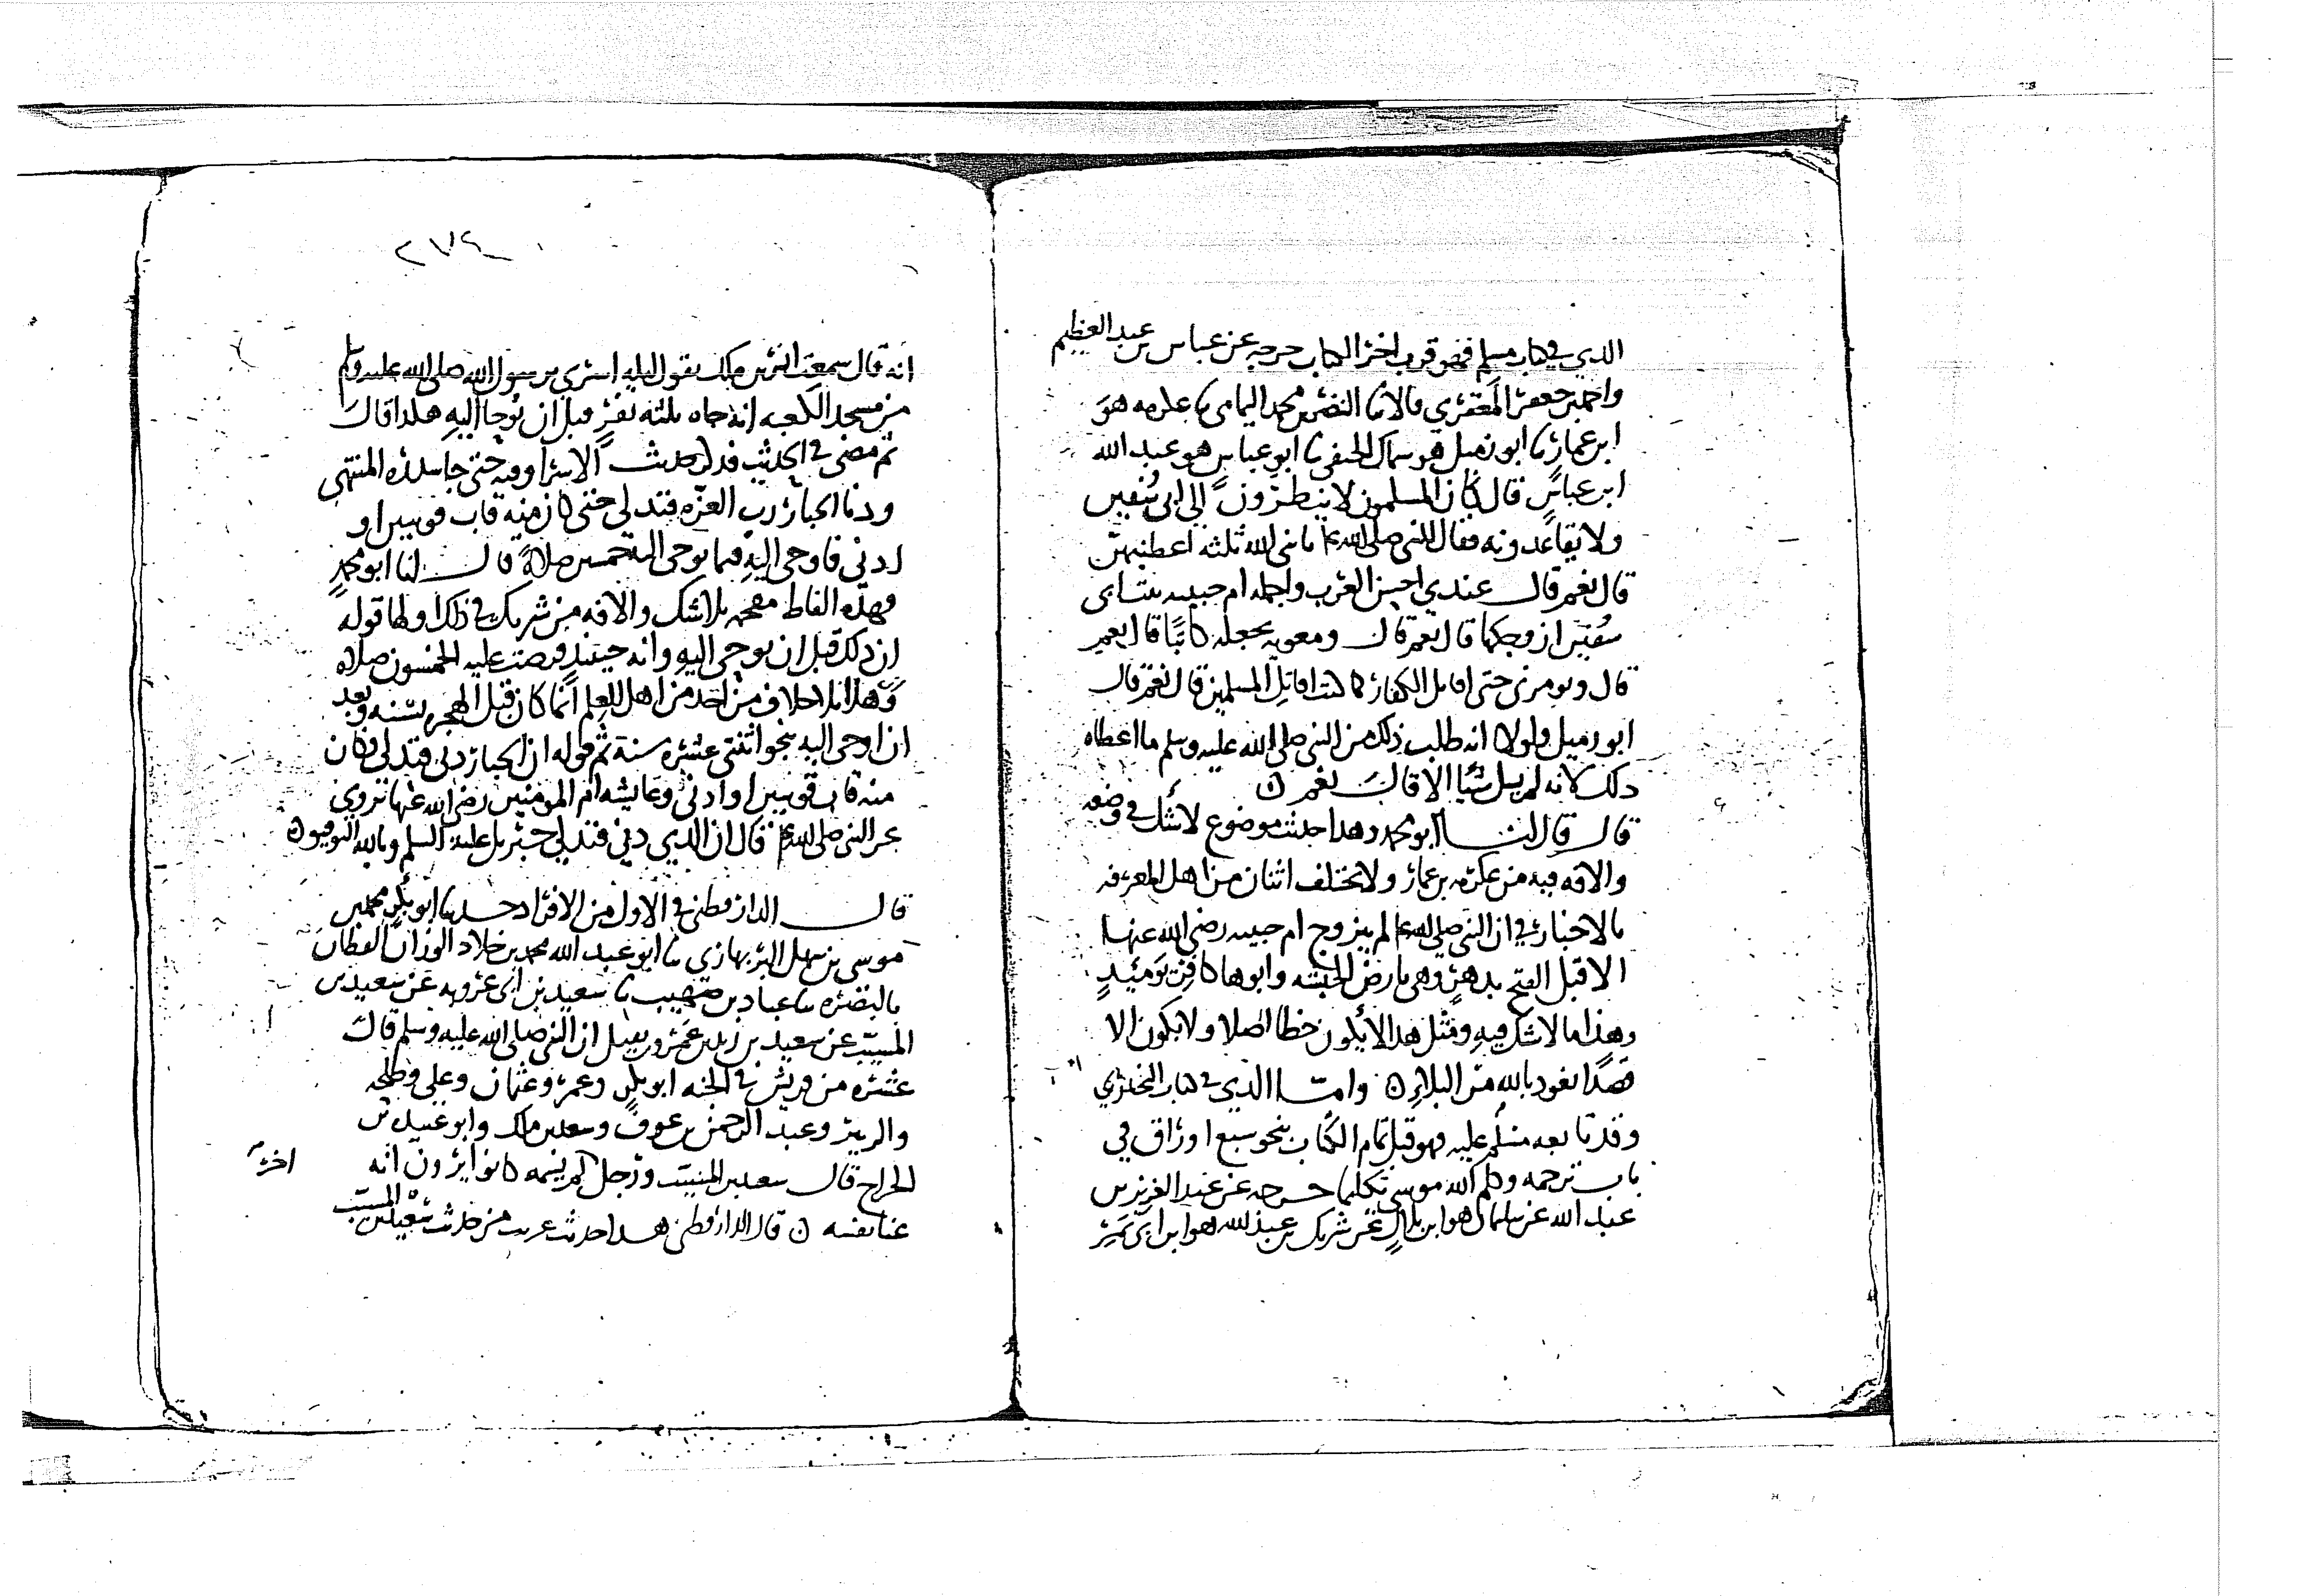 الذي في كتاب مسلم فهو قرب اخر الكتاب خرجه عن عباس بن عبد العظيم
واحمد بن جعفر المعقري قالا نا النضر بن محمد اليمامي نا عكرمه هو
ابن عمار نا ابو زميل هو سماك الحنفي نا ابو عباس هو عبد الله
ابن عباس قال كان المسلمون لا ينظرون الى ابي سفين
ولا يقاعدونه فقال للنبي صلى الله عليه يا نبي الله ثلثه اعطنيهن
قال نعم قال عندي احسن العرب واجمله ام حبيبه بنت ابي
سفين ازوجكها قال نعم قال ومعويه تجعله كاتبا قال نعم
قال وتومرني حتى اقاتل الكفار كما كنت اقاتل المسلمين قال نعم قال
ابو زميل ولولا انه طلب ذلك من النبي صلى الله عليه وسلم ما اعطاه
ذلك لانه لم يسل شيا الا قال نعم ن
قال قال لنا ابو محمد وهذا حديث موضوع لا شك في وضعه
والافه فيه من عكرمه بن عمار ولا يختلف اثنان من اهل المعرفه
بالاخبار في ان النبي صلى الله عليه لم يتزوج ام حبيبه رضي الله عنها
الا قبل الفتح بدهر وهي بارض الحبشه وابوها كافر يوميذ
وهذا ما لا شك فيه ومثل هذا لا يكون خطا اصلا ولا يكون الا
قصدا نعوذ بالله من البلاء ن وامـا الذي في كتاب البخاري
وقد تابعه مسلم عليه فهو قبل تمام الكتاب بنحو سبع اوراق في
باب ترجمه وكلم الله موسى تكليما خرجه عن عبد العزيز بن
عبد الله عن سليمان هو ابن بلال عن شريك بن عبد الله هو ابن ابي نمر
٢٧٤
انه قال سمعت انس بن ملك يقول ليله اسري برسول الله صلى الله عليه وسلم
من مسجد الكعبه انه جاه ثلثه نفر قبل ان يوحا اليه هكذا قال
ثم مضى في الحديث فذكر حديث الاسرا وفيه حتى جا سدره المنتهى
ودنا الجبار رب العزه فتدلى حتى كان منه قاب قوسين او
ادنى فاوحى اليه فيما يوحى اليه خمسين صلاة قال لنا ابو محمد
فهذه الفاظ مقحمه بلا شك والافه من شريك في ذلك اولها قوله
ان ذلك قبل ان يوحى اليه وانه حينيذ فرضت عليه الخمسون صلاه
وهذا بلا خلاف من احد من اهل العلم انما كان قبل الهجره بسنه وبعد
ان اوحى اليه بنحو اثنتي عشره سنة ثم قوله ان الجبار دنى فتدلى فكان
منه قاب قوسين او ادنى وعايشه ام المومنين رضي الله عنها تروي
عن النبي صلى الله عليه قال ان الذي دنى فتدلى جبريل عليه السلم وبالله التوفيق ن
قال الدارقطني في الاول من الافراد حدثنا ابو بكر محمد بن
موسى بن سهل البربهاري نا ابو عبد الله محمد بن خلاد الوزان القطان
بالبصره نا عباد بن صهيب نا سعيد بن ابي عروبه عن سعيد بن
المسيب عن سعيد بن زيد بن عمرو بن نفيل ان النبي صلى الله عليه وسلم قال
عشره من قريش في الجنه ابو بكر وعمر وعثمان وعلي وطلحه
والزبير وعبد الرحمن بن عوف وسعد بن ملك وابو عبيده بن
الجراح قال سعيد بن المسيب ورجل لم يسمه كانوا يرون انه
اخر
عنا نفسه ن قال الدارقطني هـذا حديث غريب من حديث سعيد بن المسيب